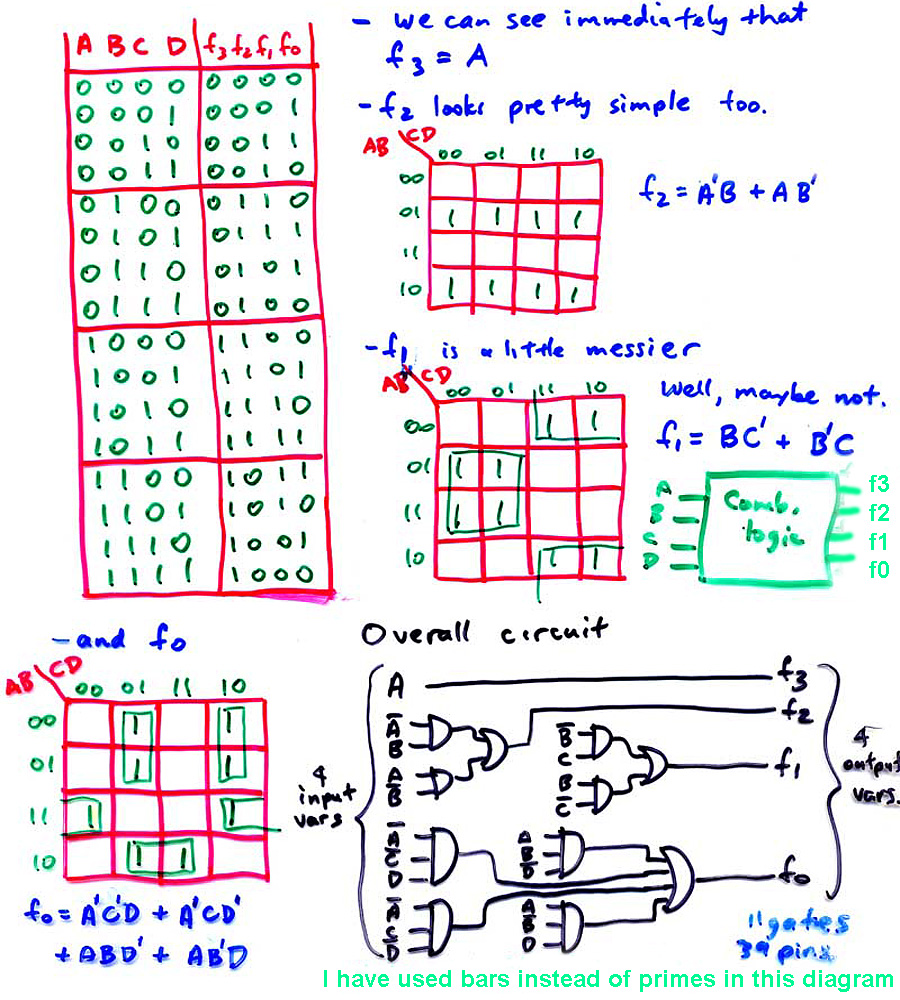 A B C D f₃ f₂ f₁ f₀
0 0 0 0 0 0 0 0
0 0 0 1 0 0 0 1
0 0 1 0 0 0 1 1
0 0 1 1 0 0 1 0
0 1 0 0 0 1 1 0
0 1 0 1 0 1 1 1
0 1 1 0 0 1 0 1
0 1 1 1 0 1 0 0
1 0 0 0 1 1 0 0
1 0 0 1 1 1 0 1
1 0 1 0 1 1 1 0
1 0 1 1 1 1 1 1
1 1 0 0 1 0 1 1
1 1 0 1 1 0 1 0
1 1 1 0 1 0 0 1
1 1 1 1 1 0 0 0
- we can see immediately that
f₃ = A
- f₂ looks pretty simple too.
AB CD
00 01 11 10
00
01 1 1 1 1
11
10 1 1 1 1
f₂ = A'B + AB'
- f₁ is a little messier
AB CD
00 01 11 10
00 1 1
01 1 1
11 1 1
10 1 1
Well, maybe not.
f₁ = BC' + B'C
A
B
C
D
Comb.
logic
f3
f2
f1
f0
- and f₀
AB CD
00 01 11 10
00 1 1
01 1 1
11 1 1
10 1 1
f₀ = A'C'D + A'CD'
+ ABD' + AB'D
Overall circuit
4
input
vars
A
A̅
B
A
B̅
B̅
C
B
C̅
A̅
C̅
D
A̅
C
D̅
A
B
D̅
A
B̅
D
f₃
f₂
f₁
f₀
4
output
vars.
11 gates
39 pins
I have used bars instead of primes in this diagram